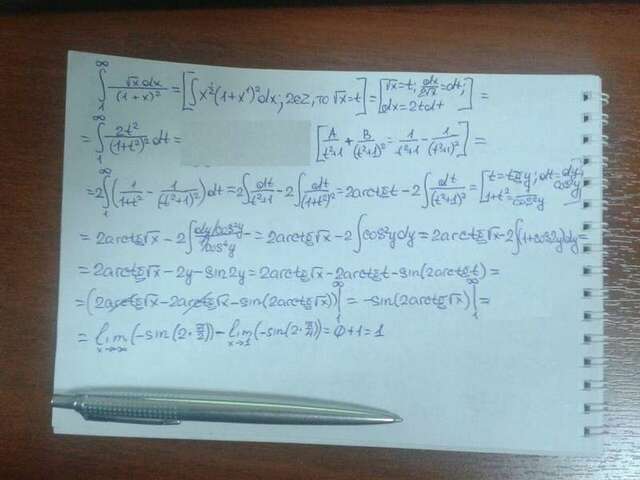 ∫₁^∞ √x dx/(1+x)² = [∫x^½(1+x¹)^-²dx; 2∈Z, то √x=t] = [√x=t; dx/2√x=dt; dx=2tdt] =
= ∫₁^∞ 2t²/(1+t²)² dt = [A/(t²+1) + B/(t²+1)² = 1/(t²+1) - 1/(t²+1)²] =
= 2∫₁^∞ (1/(1+t²) - 1/(t²+1)²)dt = 2∫dt/(t²+1) - 2∫dt/(1+t²)² = 2arctgt - 2∫dt/(t²+1)² = [t=tgy; dt=dy/cos²y; 1+t²=1/cos²y]
= 2arctg√x - 2∫(dy/cos²y)/(1/cos⁴y) = 2arctg√x - 2∫cos²ydy = 2arctg√x - 2∫(1+cos2y)dy =
= 2arctg√x - 2y - sin2y = 2arctg√x - 2arctgt - sin(2arctgt) =
= (2arctg√x - 2arctg√x - sin(2arctg√x))|₁^∞ = -sin(2arctg√x)|₁^∞ =
= lim x→∞ (-sin(2·π/2)) - lim x→1 (-sin(2·π/4)) = 0+1=1